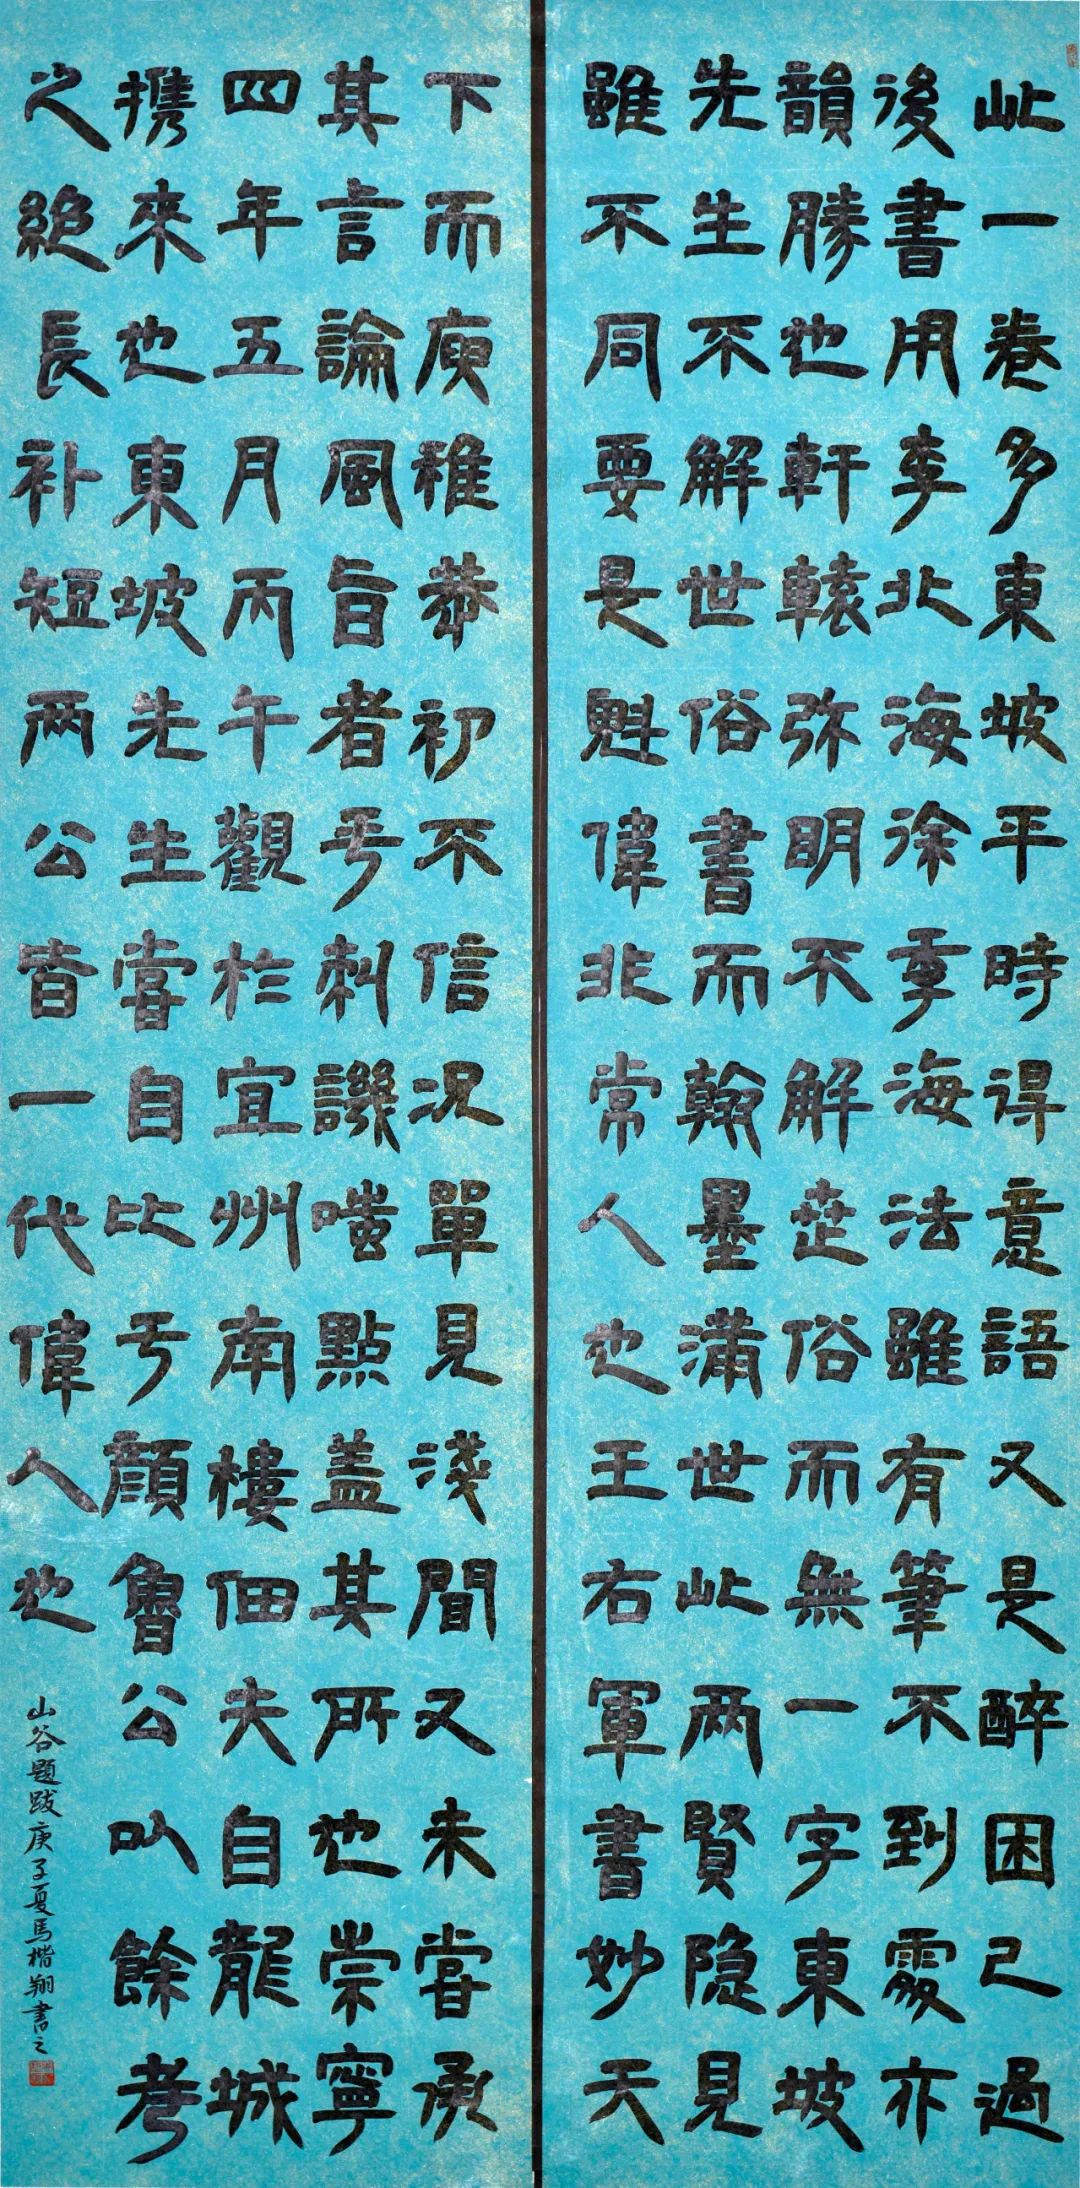 此一卷多東坡平時得意語又是醉困已過
後書用李北海徐季海法雖有筆不到處亦
韻勝也軒轅弥明不解世俗而無一字東坡
先生不解世俗書而翰墨滿世此两賢隐見
雖不同要是魁偉非常人也王右軍書妙天
下而庾稚恭初不信况單見淺聞又未嘗承
其言論風旨者乎刺譏嗤點盖其所也崇寧
四年五月丙午觀於宜州南樓佃夫自龍城
携來也東坡先生嘗自比于顔魯公以餘考
之絶長补短两公皆一代偉人也
山谷題跋庚子夏馬楷翔書之